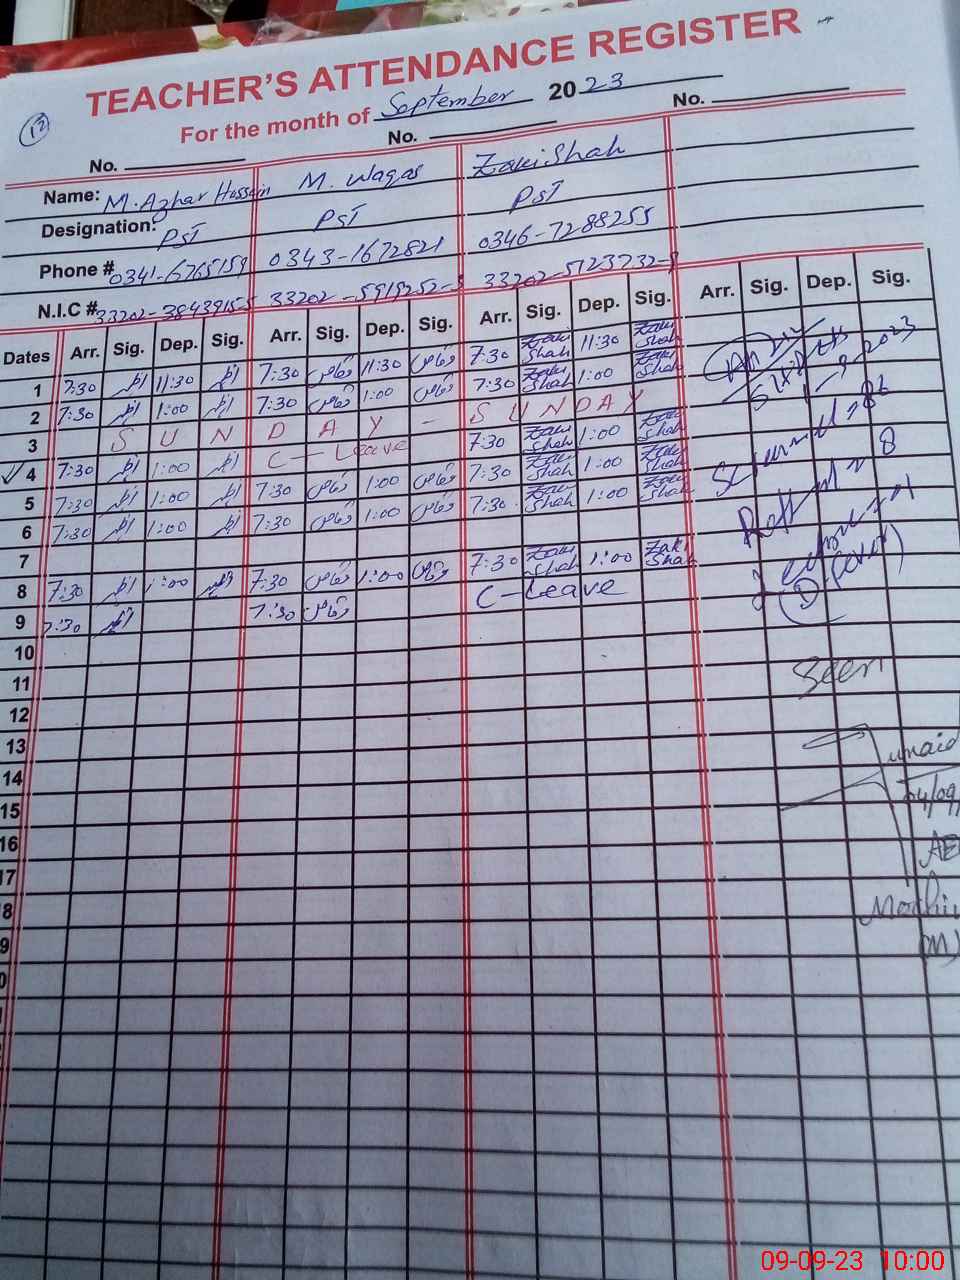 TEACHER'S ATTENDANCE REGISTER
12
For the month of September 2023
No. No. No.
Name: M. Azhar Hussain M. Waqas Zaki Shah
Designation: PST PST PST
Phone # 0341-6765159 0343-1672821 0346-7288255
N.I.C # 33202-3843915-5 33202-5919252-3 33202-5123732-
Dates Arr. Sig. Dep. Sig. Arr. Sig. Dep. Sig. Arr. Sig. Dep. Sig. Arr. Sig. Dep. Sig.
1 7:30 11:30 7:30 وقاص 11:30 وقاص 7:30 Zaki Shah 11:30 Zaki Shah
2 7:30 1:00 7:30 وقاص 1:00 وقاص 7:30 Zaki Shah 1:00 Zaki Shah
3 S U N D A Y - S U N D A Y
4 7:30 1:00 C-Leave 7:30 Zaki Shah 1:00 Zaki Shah
5 7:30 1:00 7:30 وقاص 1:00 وقاص 7:30 Zaki Shah 1:00 Zaki Shah
6 7:30 1:00 7:30 وقاص 1:00 وقاص 7:30 Zaki Shah 1:00 Zaki Shah
7
8 7:30 1:00 7:30 وقاص 1:00 وقاص 7:30 Zaki Shah 1:00 Zaki Shah
9 7:30 7:30 وقاص C-Leave
10
11
12
13
14
15
16
17
8
9
0
2023
8
Seen
unaid
AE
(M)
09-09-23 10:00